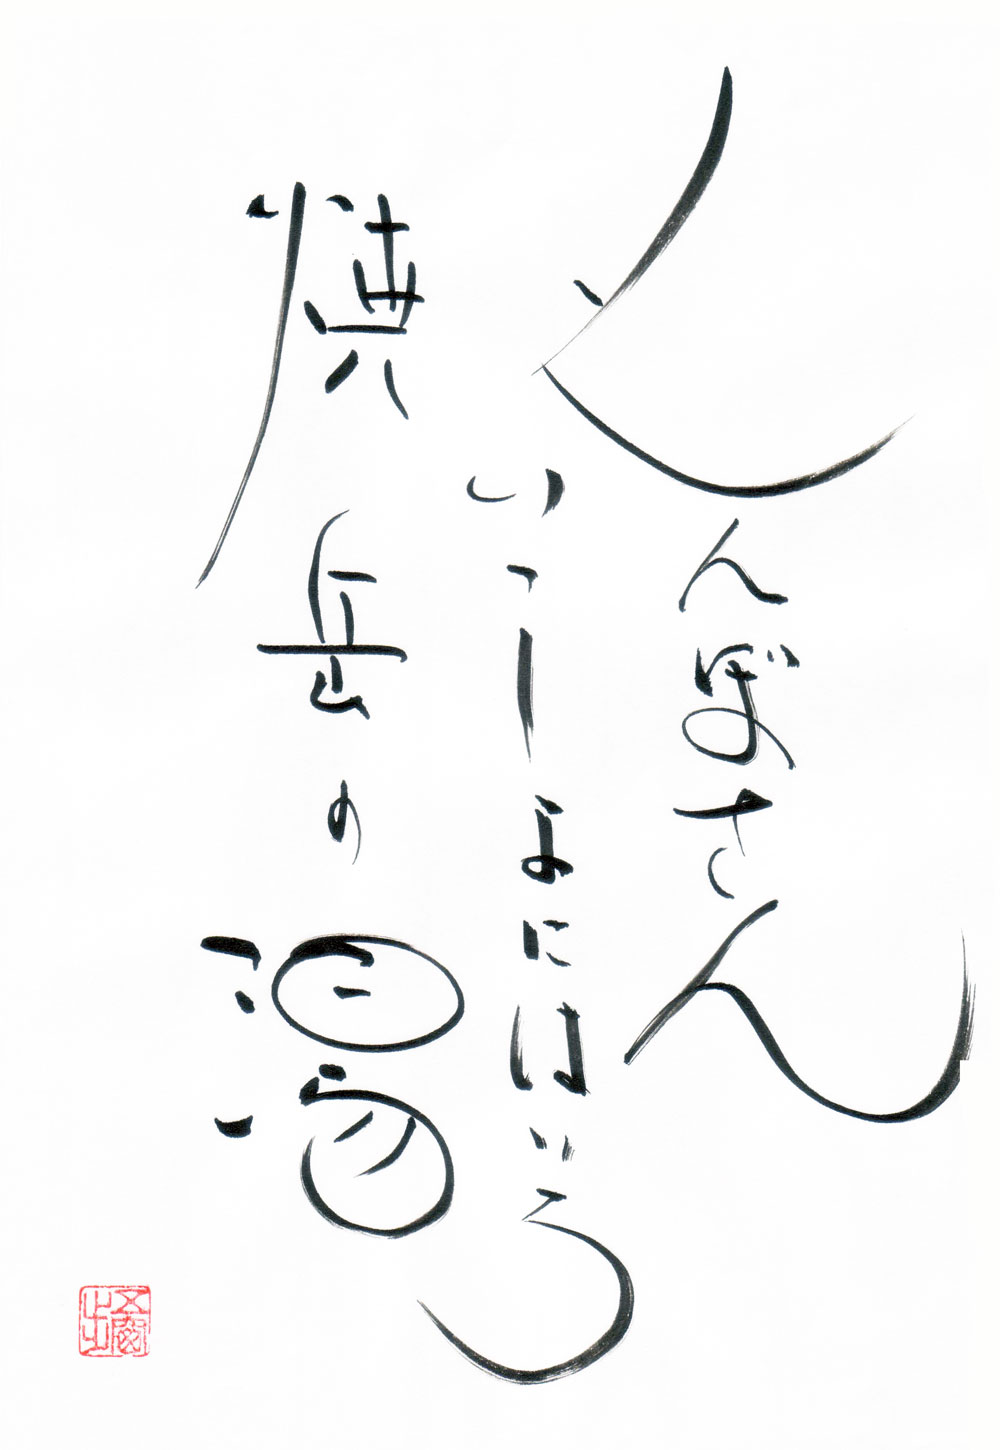 とんぼさん
いっしょにはいろ
焼岳の湯